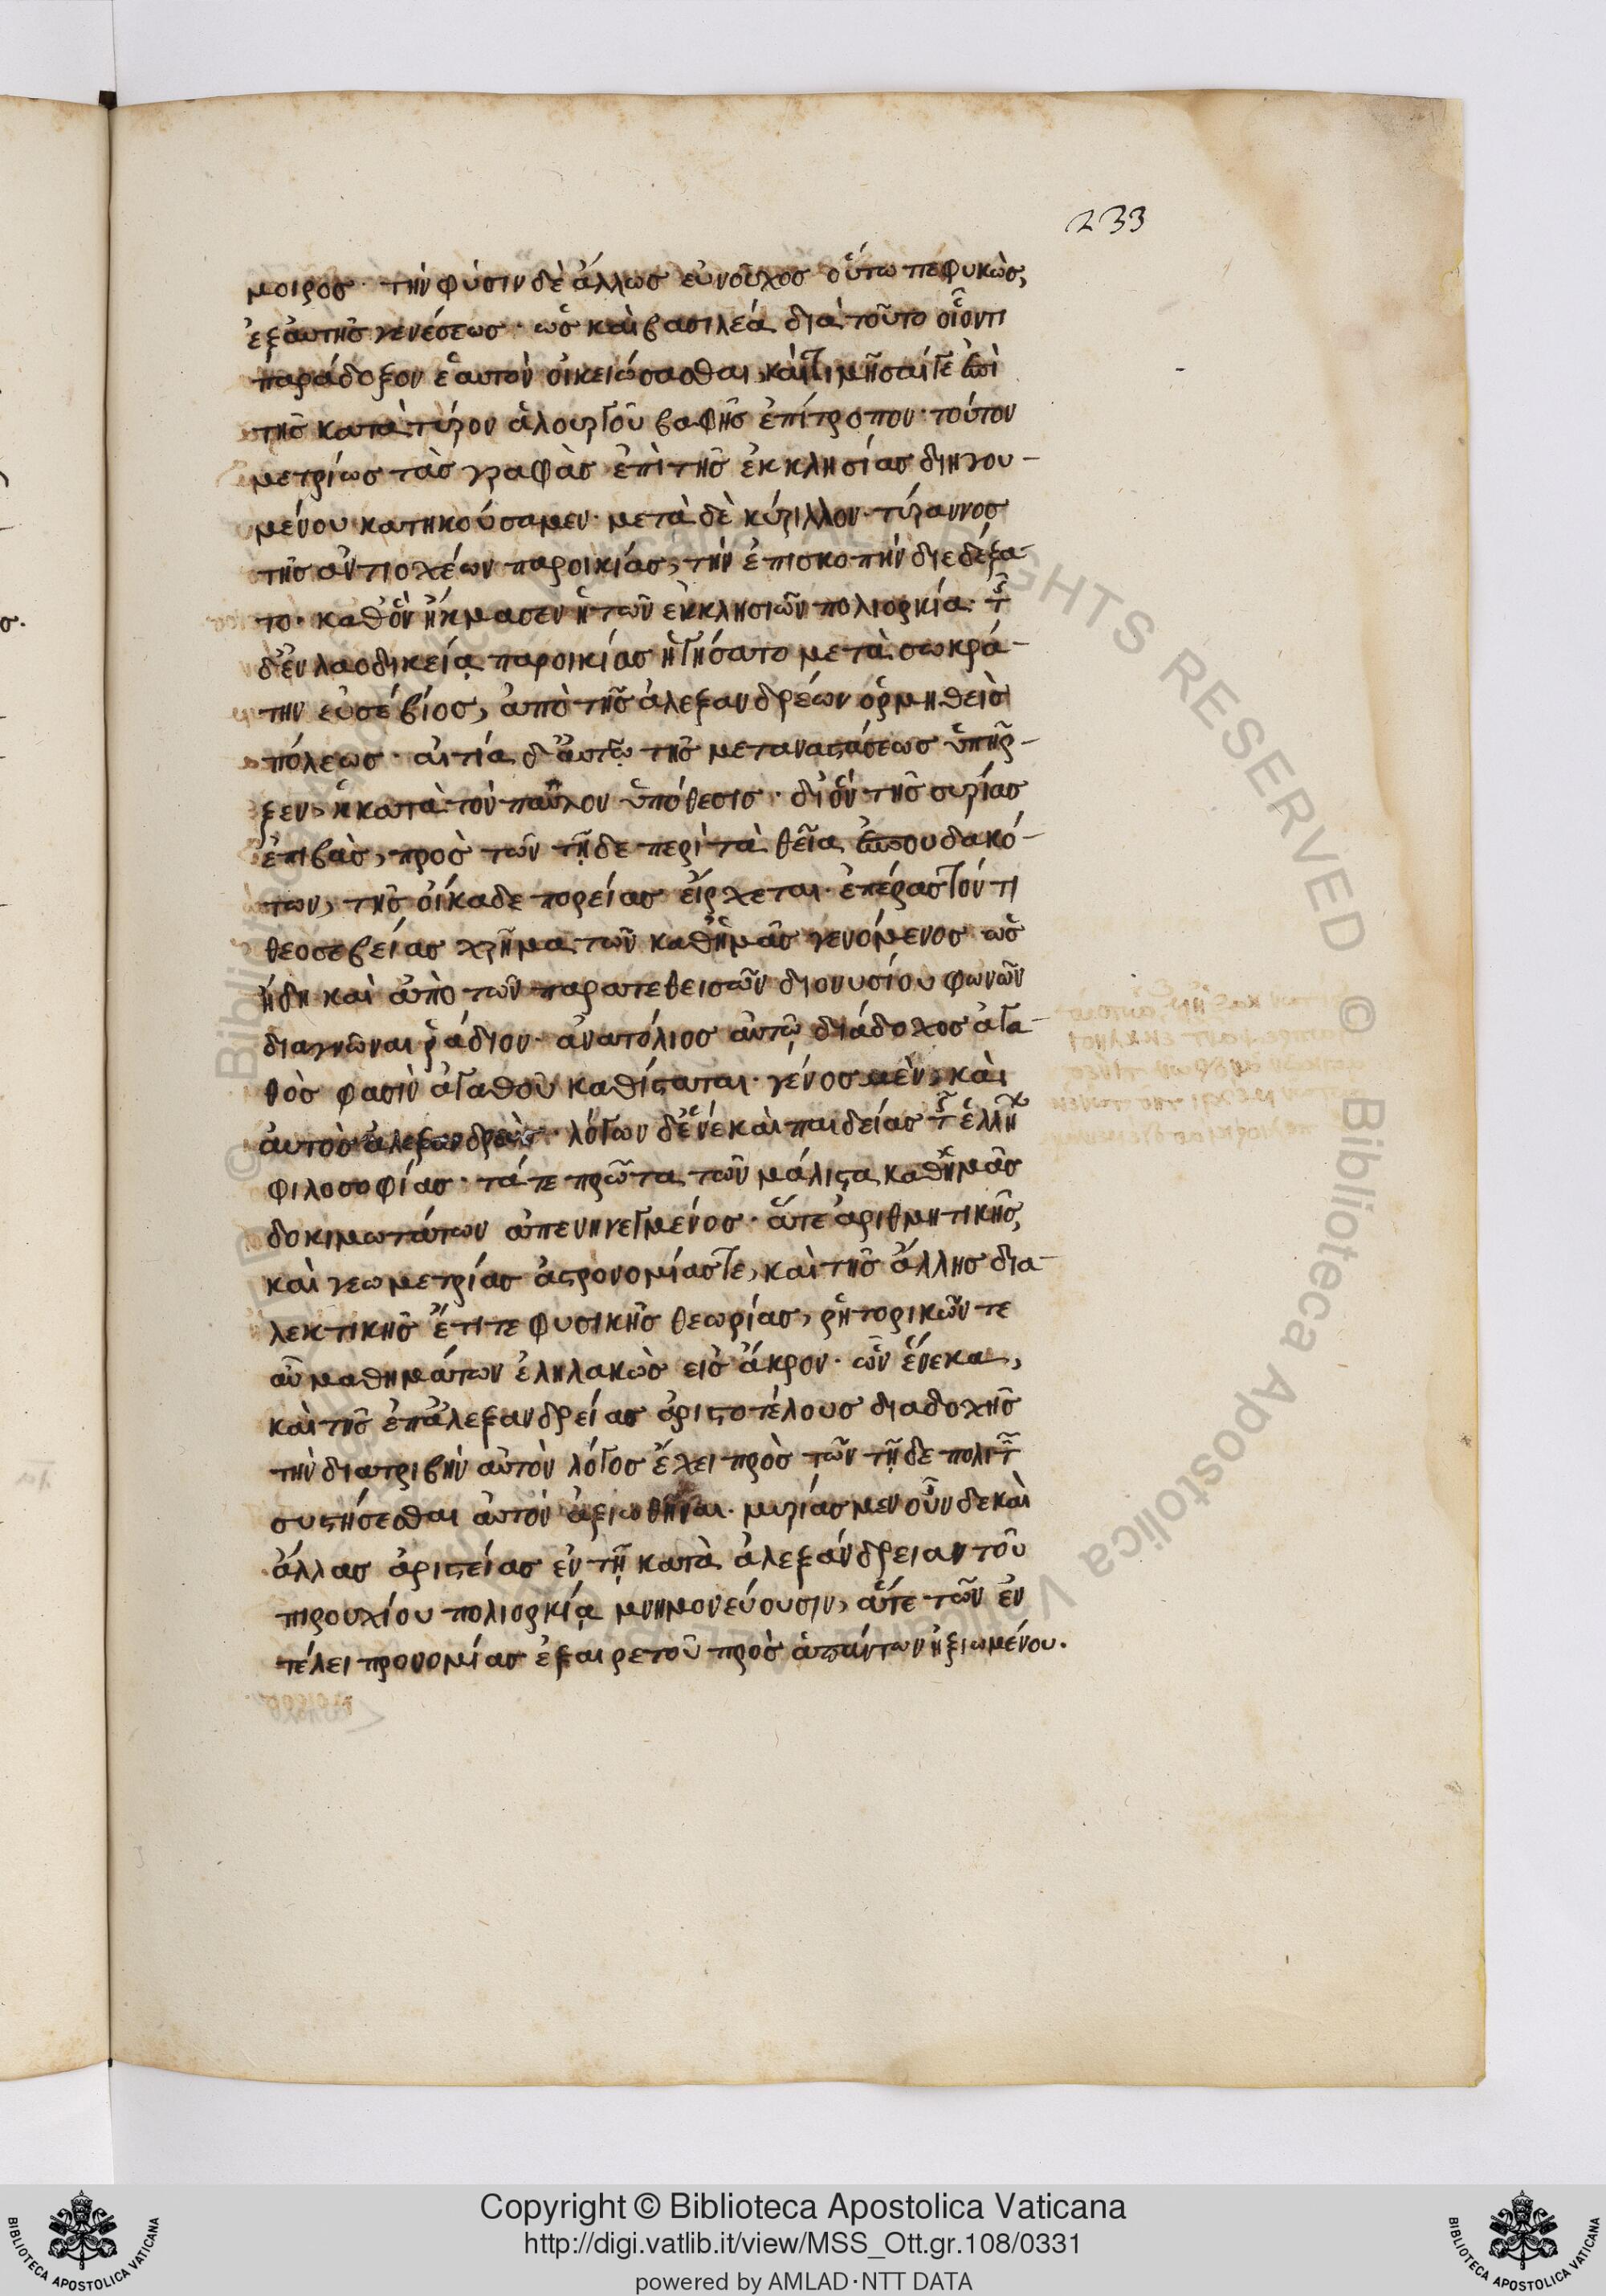 233
μοιρος· τὴν φύσιν δὲ ἄλλως εὐνοῦχος οὕτω πεφυκὼς,
ἐξ αὐτῆς γενέσεως· ὡς καὶ βασιλέα διὰ τοῦτο οἷόν τι
παράδοξον ἑαυτὸν οἰκειώσασθαι, καὶ τιμῆσαί τε ἐπὶ
τῆς κατὰ τύρον ἁλουργοῦ βαφῆς ἐπίτροπον· τούτου
μετρίως τὰς γραφὰς ἐπὶ τῆς ἐκκλησίας διηγου-
μένου κατηκούσαμεν· μετὰ δὲ κύριλλον· τύραννος
τῆς ἀντιοχέων παροικίας, τὴν ἐπισκοπὴν διεδέξα-
το· καθ' ὃν ἤκμασεν ἡ τῶν ἐκκλησιῶν πολιορκία· τῆς
δ' ἐν λαοδικείᾳ παροικίας ἡγήσατο μετὰ σωκρά-
την εὐσέβιος, ἀπὸ τῆς ἀλεξανδρέων ὁρμηθεὶς
πόλεως· αἰτία δ' αὐτῷ τῆς μεταναστάσεως ὑπῆρ-
ξεν, ἡ κατὰ τὸν παῦλον ὑπόθεσις· δι' ὃν τῆς συρίας
ἐπιβὰς, πρὸς τῶν τῇδε περὶ τὰ θεῖα ἐσπουδακό-
των, τῆς οἴκαδε πορείας εἴρχεται· ἐπέραστόν τι
θεοσεβείας χρῆμα τῶν καθ' ἡμᾶς γενόμενος ὡς
ἤδη καὶ ἀπὸ τῶν παρατεθεισῶν διονυσίου φωνῶν
διαγνῶναι ῥάδιον· ἀνατόλιος αὐτῷ διάδοχος ἀγα-
θὸς φασὶν ἀγαθοῦ καθίσταται· γένος μὲν, καὶ
αὐτὸς ἀλεξανδρεὺς· λόγων δ' ἕνεκα παιδείας τῆς ἑλλήν
φιλοσοφίας· τά τε πρῶτα τῶν μάλιστα καθ' ἡμᾶς
δοκιμωτάτων ἀπενηνεγμένος· ἅτε ἀριθμητικῆς,
καὶ γεωμετρίας ἀστρονομίας τε, καὶ τῆς ἄλλης δια-
λεκτικῆς ἔτι τε φυσικῆς θεωρίας, ῥητορικῶν τε
αὖ μαθημάτων ἐληλακὼς εἰς ἄκρον· ὧν ἕνεκα,
καὶ τῆς ἐπ' ἀλεξανδρείας ἀριστοτέλους διαδοχῆς
τὴν διατριβὴν αὐτὸν λόγος ἔχει πρὸς τῶν τῇδε πολιτῶν
συστήσεσθαι αὐτὸν ἀξιωθῆναι· μυρίας μὲν οὖν δὲ καὶ
ἄλλας ἀριστείας ἐν τῇ κατὰ ἀλεξάνδρειαν τοῦ
πιρουχίου πολιορκίᾳ μνημονεύουσιν, ἅτε τῶν ἐν
τέλει προνομίας ἐξαιρέτου πρὸς ἁπάντων ἠξιωμένου.
© Biblioteca Apostolica Vaticana ALL RIGHTS RESERVED
Copyright © Biblioteca Apostolica Vaticana
http://digi.vatlib.it/view/MSS_Ott.gr.108/0331
powered by AMLAD·NTT DATA
BIBLIOTECA APOSTOLICA VATICANA
BIBLIOTECA APOSTOLICA VATICANA